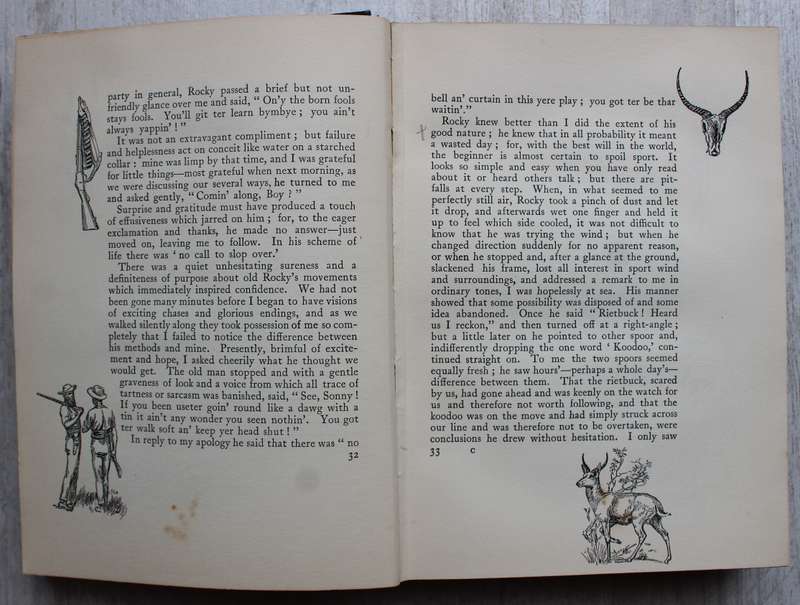 party in general, Rocky passed a brief but not un-
friendly glance over me and said, “ On'y the born fools
stays fools. You'll git ter learn bymbye ; you ain't
always yappin' ! ”
It was not an extravagant compliment ; but failure
and helplessness act on conceit like water on a starched
collar : mine was limp by that time, and I was grateful
for little things—most grateful when next morning, as
we were discussing our several ways, he turned to me
and asked gently, “ Comin' along, Boy ? ”
Surprise and gratitude must have produced a touch
of effusiveness which jarred on him ; for, to the eager
exclamation and thanks, he made no answer—just
moved on, leaving me to follow. In his scheme of
life there was ‘ no call to slop over.’
There was a quiet unhesitating sureness and a
definiteness of purpose about old Rocky's movements
which immediately inspired confidence. We had not
been gone many minutes before I began to have visions
of exciting chases and glorious endings, and as we
walked silently along they took possession of me so com-
pletely that I failed to notice the difference between
his methods and mine. Presently, brimful of excite-
ment and hope, I asked cheerily what he thought we
would get. The old man stopped and with a gentle
graveness of look and a voice from which all trace of
tartness or sarcasm was banished, said, “ See, Sonny !
If you been useter goin' round like a dawg with a
tin it ain't any wonder you seen nothin'. You got
ter walk soft an' keep yer head shut ! ”
In reply to my apology he said that there was “ no
32
bell an' curtain in this yere play ; you got ter be that
waitin'.”
Rocky knew better than I did the extent of his
good nature ; he knew that in all probability it meant
a wasted day ; for, with the best will in the world,
the beginner is almost certain to spoil sport. It
looks so simple and easy when you have only read
about it or heard others talk ; but there are pit-
falls at every step. When, in what seemed to me
perfectly still air, Rocky took a pinch of dust and let
it drop, and afterwards wet one finger and held it
up to feel which side cooled, it was not difficult to
know that he was trying the wind ; but when he
changed direction suddenly for no apparent reason,
or when he stopped and, after a glance at the ground,
slackened his frame, lost all interest in sport wind
and surroundings, and addressed a remark to me in
ordinary tones, I was hopelessly at sea. His manner
showed that some possibility was disposed of and some
idea abandoned. Once he said “ Rietbuck ! Heard
us I reckon,” and then turned off at a right-angle ;
but a little later on he pointed to other spoor and,
indifferently dropping the one word ‘ Koodoo,’ con-
tinued straight on. To me the two spoors seemed
equally fresh ; he saw hours'—perhaps a whole day's—
difference between them. That the rietbuck, scared
by us, had gone ahead and was keenly on the watch for
us and therefore not worth following, and that the
koodoo was on the move and had simply struck across
our line and was therefore not to be overtaken, were
conclusions he drew without hesitation. I only saw
33 C